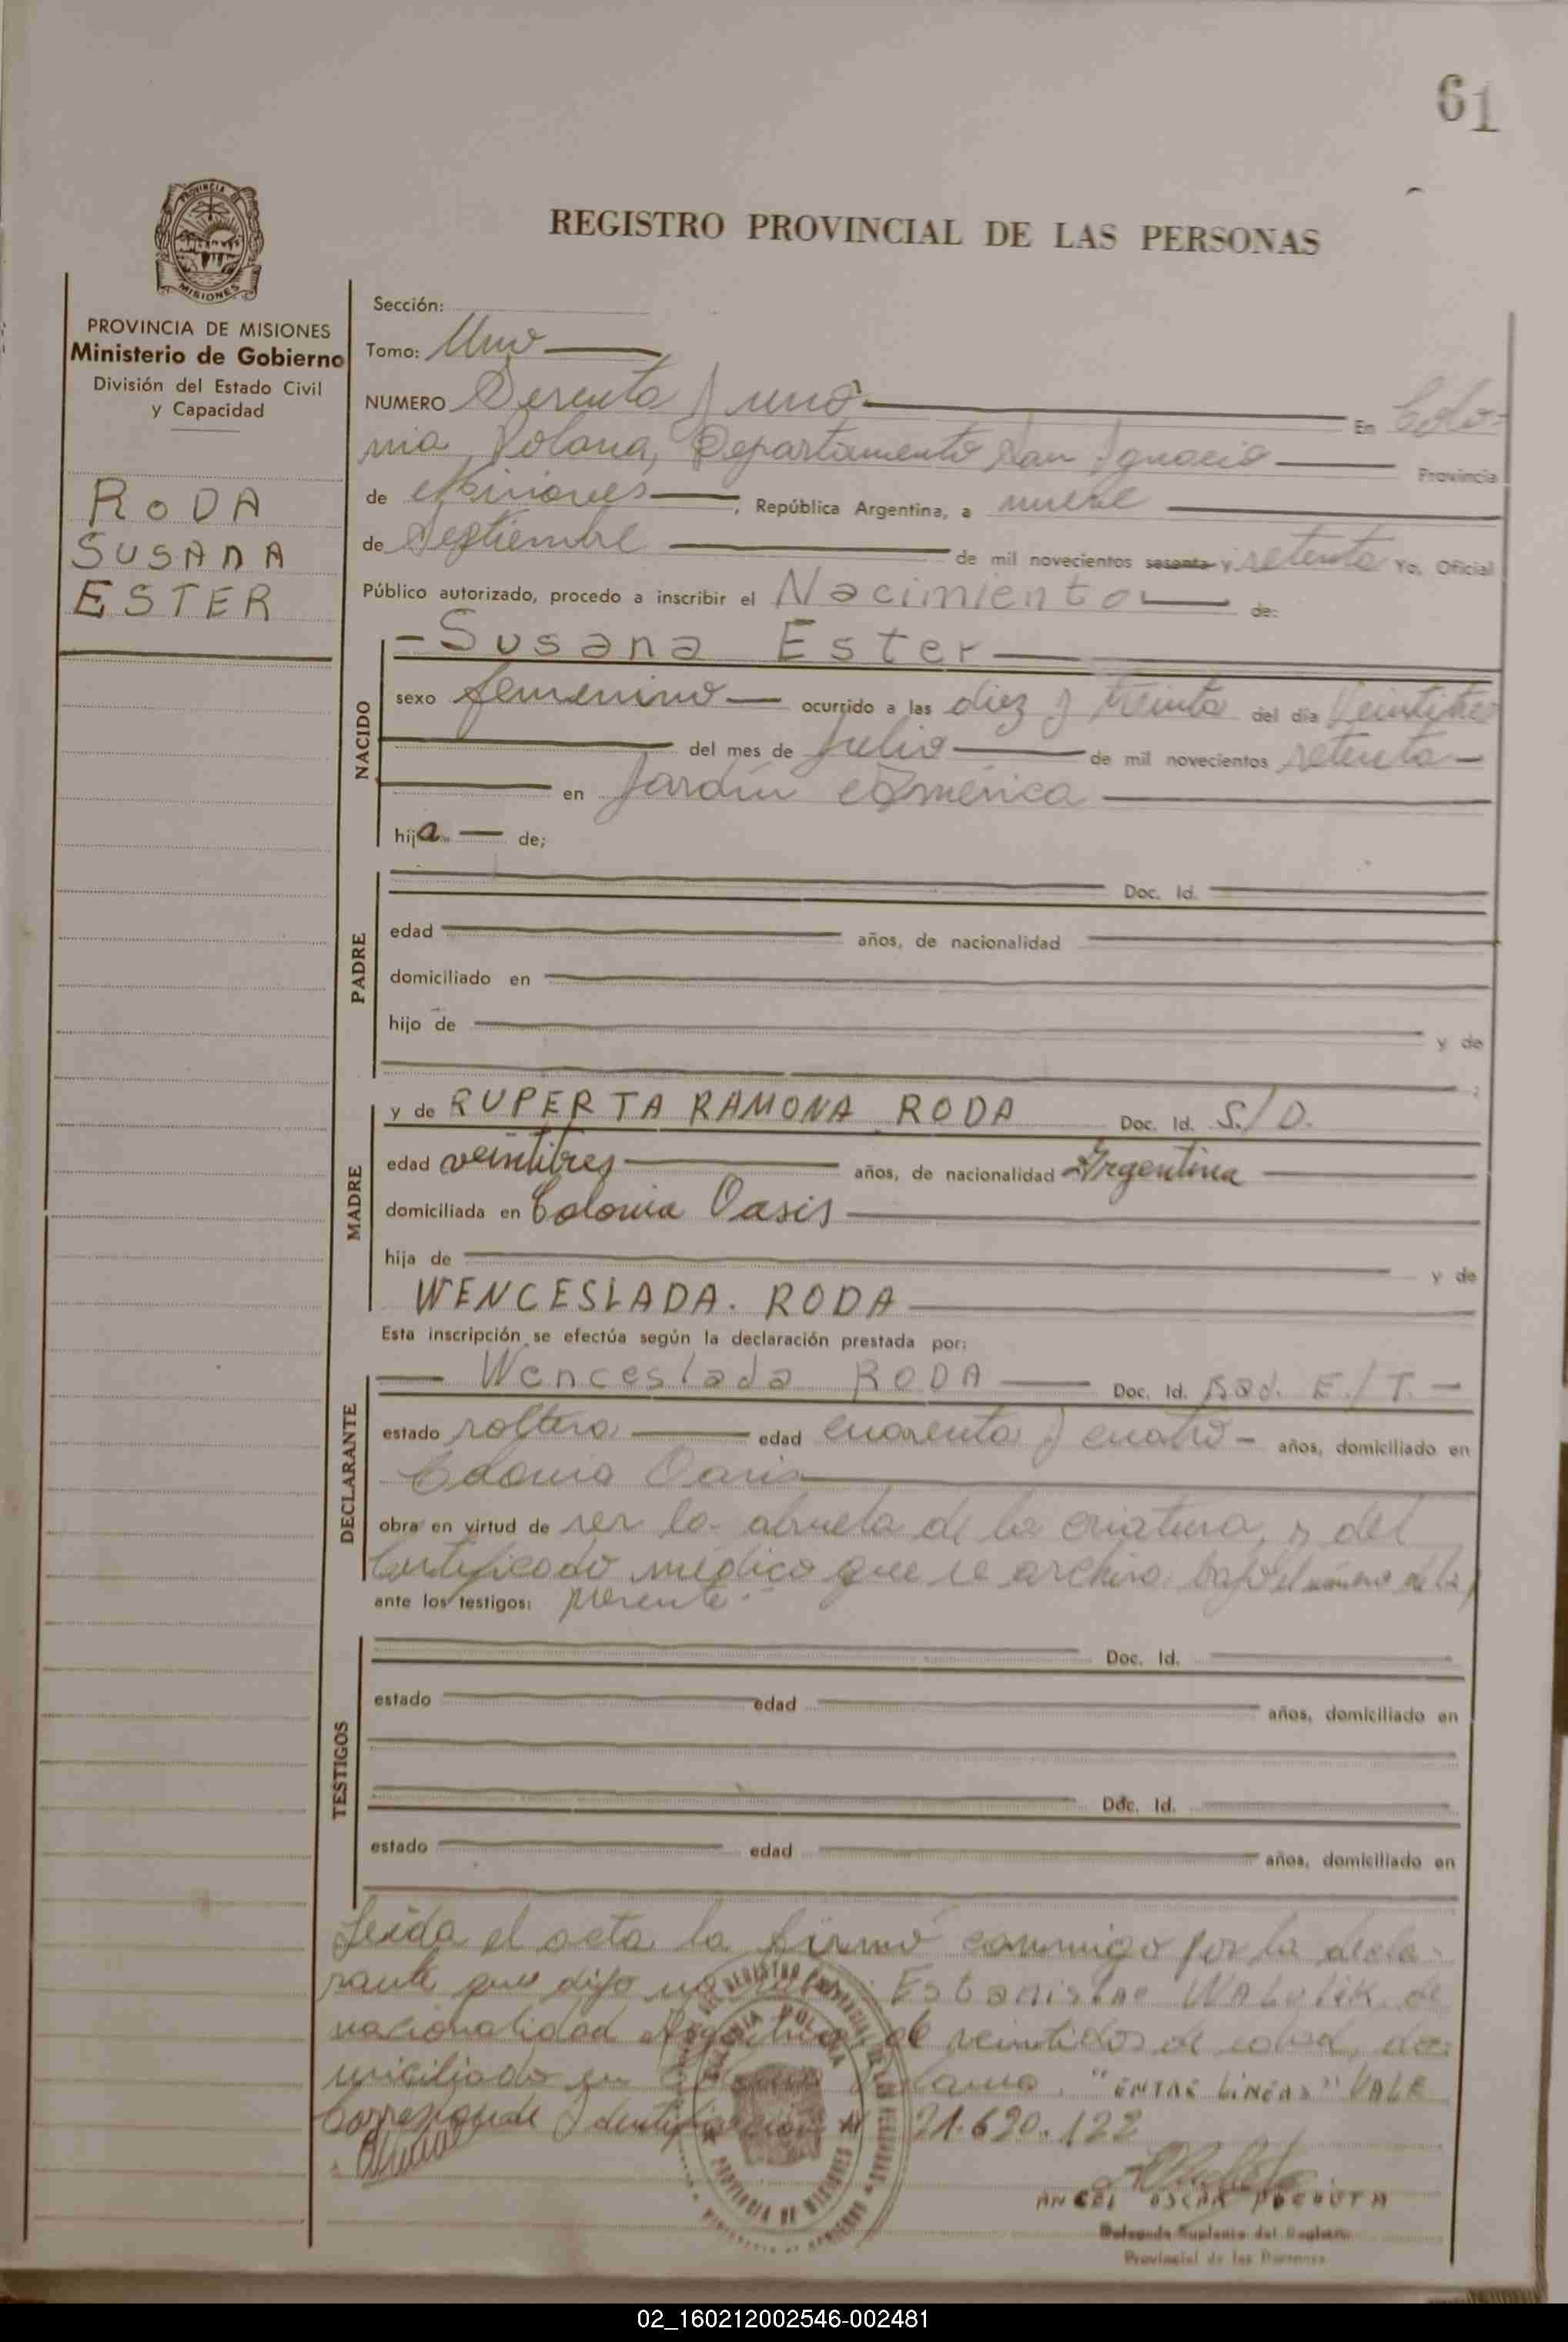 61
REGISTRO PROVINCIAL DE LAS PERSONAS
PROVINCIA DE
MISIONES
PROVINCIA DE MISIONES
Ministerio de Gobierno
División del Estado Civil
y Capacidad
RODA
SUSANA
ESTER
Sección:
Tomo: Uno
NUMERO Sesenta y uno En Colo-
nia Polana, Departamento San Ignacio Provincia
de Misiones, República Argentina, a nueve
de Septiembre de mil novecientos sesenta y setenta Yo, Oficial
Público autorizado, procedo a inscribir el Nacimiento de:
NACIDO
Susana Ester
sexo femenino ocurrido a las diez y treinta del día Veintitres
del mes de Julio de mil novecientos setenta
en Jardín América
hija de;
PADRE
Doc. Id.
edad años, de nacionalidad
domiciliado en
hijo de y de
MADRE
y de RUPERTA RAMONA RODA Doc. Id. S./D.
edad veintitres años, de nacionalidad Argentina
domiciliada en Colonia Oasis
hija de y de
WENCESLADA. RODA
Esta inscripción se efectúa según la declaración prestada por:
DECLARANTE
Wenceslada RODA Doc. Id. E./T.
estado soltera edad cuarenta y cuatro años, domiciliado en
Colonia Oasis
obra en virtud de ser la abuela de la criatura, y del
Certificado médico que se archiva bajo el número de la
ante los testigos: presente.
TESTIGOS
Doc. Id.
estado edad años, domiciliado en
Doc. Id.
estado edad años, domiciliado en
Leída el acta la firmó conmigo por la decla-
rante que dijo no Estanislao de
nacionalidad Argentina de veintidos de edad, do-
miciliado en Colonia Polana. "ENTRE LINEAS" VALE
Corresponde Identificación N 21.620.122
ANGEL OSCAR
Delegado Suplente del Registro
Provincial de las Personas
02_160212002546-002481